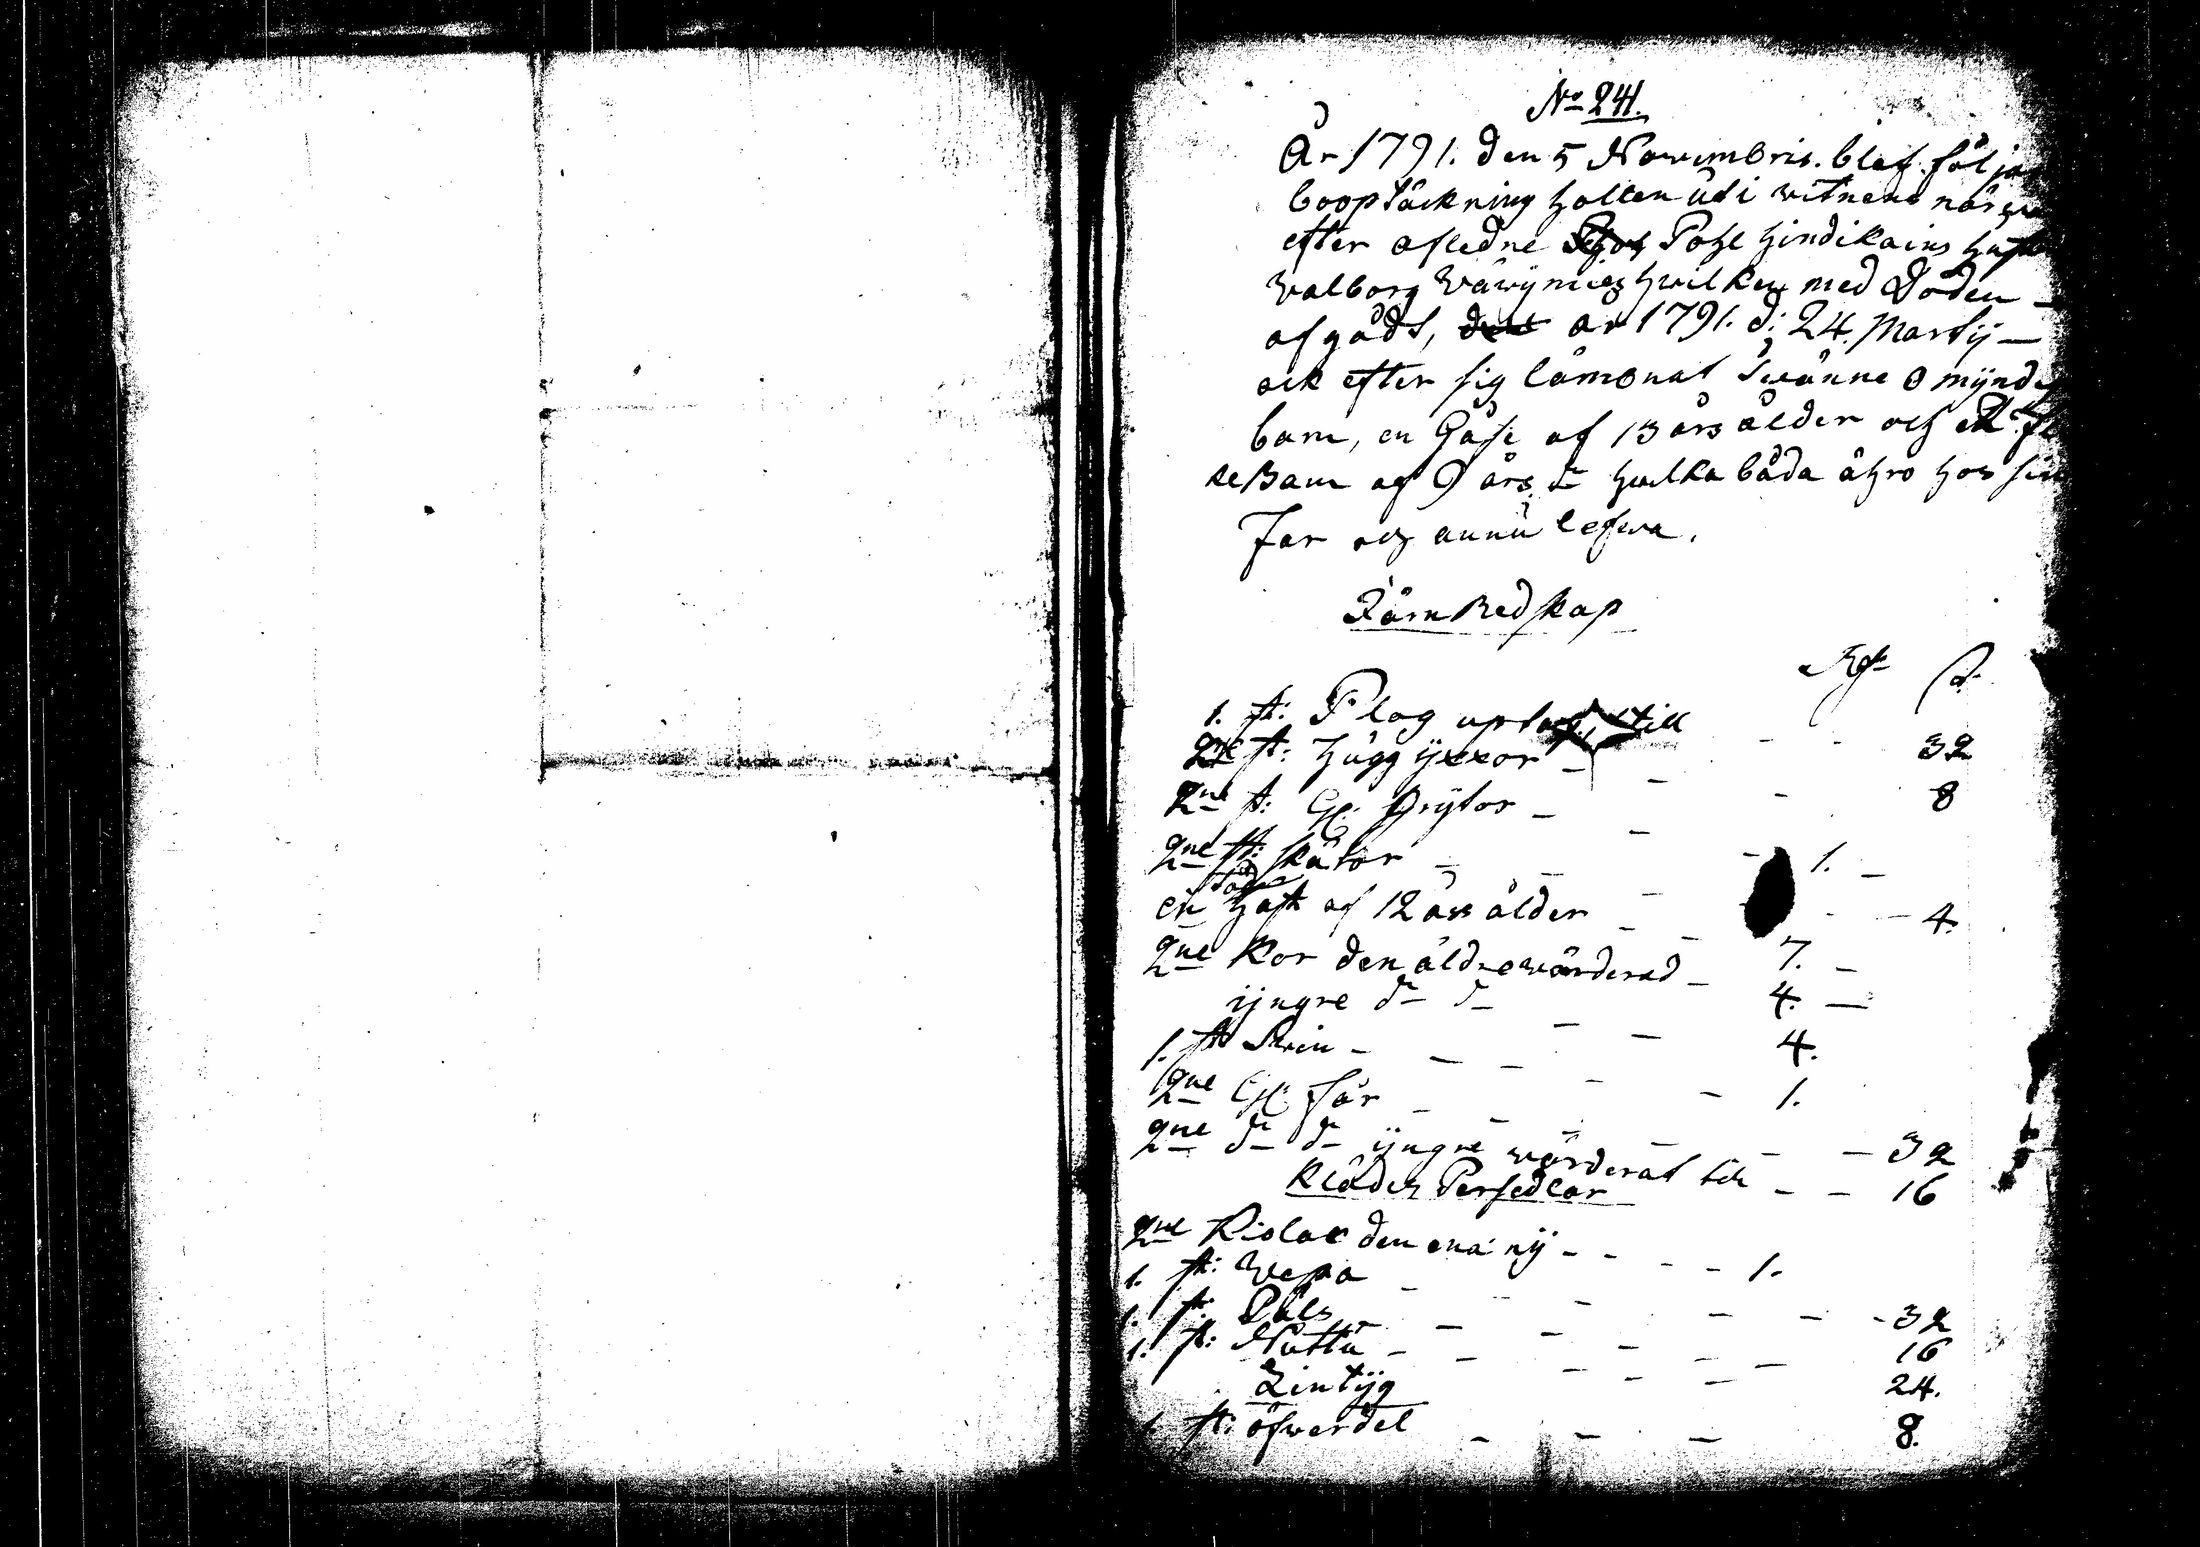 No 241.
År 1791. den 5 Novembris. blef följan
booptäckning hollen udi witnens närwa
efter afledne Pohl Hindikains hustru
Walborg Wäwyniez hwilken med Döden —
afgådt, år 1791. d: 24. Martij —
ock efter sig lämbnat twänne omyndi
barn, en Gåse af 13 års ålder och ett fl
kebarn af 9 års do hwilka båda ähro hos sin
far och ännu lefwa.
Järn Redskap
Rdr s.
1. st: Plog uptagen till - - 32
2ne st: Hugg yxxor - - - 8
2ne st: Grytor - - - 1. -
2ne st: skäror - - - - 4.
en Häst af 12 års ålder - - 7. -
2ne Kor den äldre wärderad - 4. —
yngre do do - - 4.
1. st Swin - - - - - 1.
2ne får - - - - - 32
2ne do do yngre wärderat till - - 16
Kläder Persedlar
2ne Kiolar den ena ny - - - - 1.
1. st: Wepa - - - - - 32
1. st: Päls - - - - - 16
1. st: Nuttu - - - - - 24.
Lintyg
1. st: öfwerdel - - - 8.